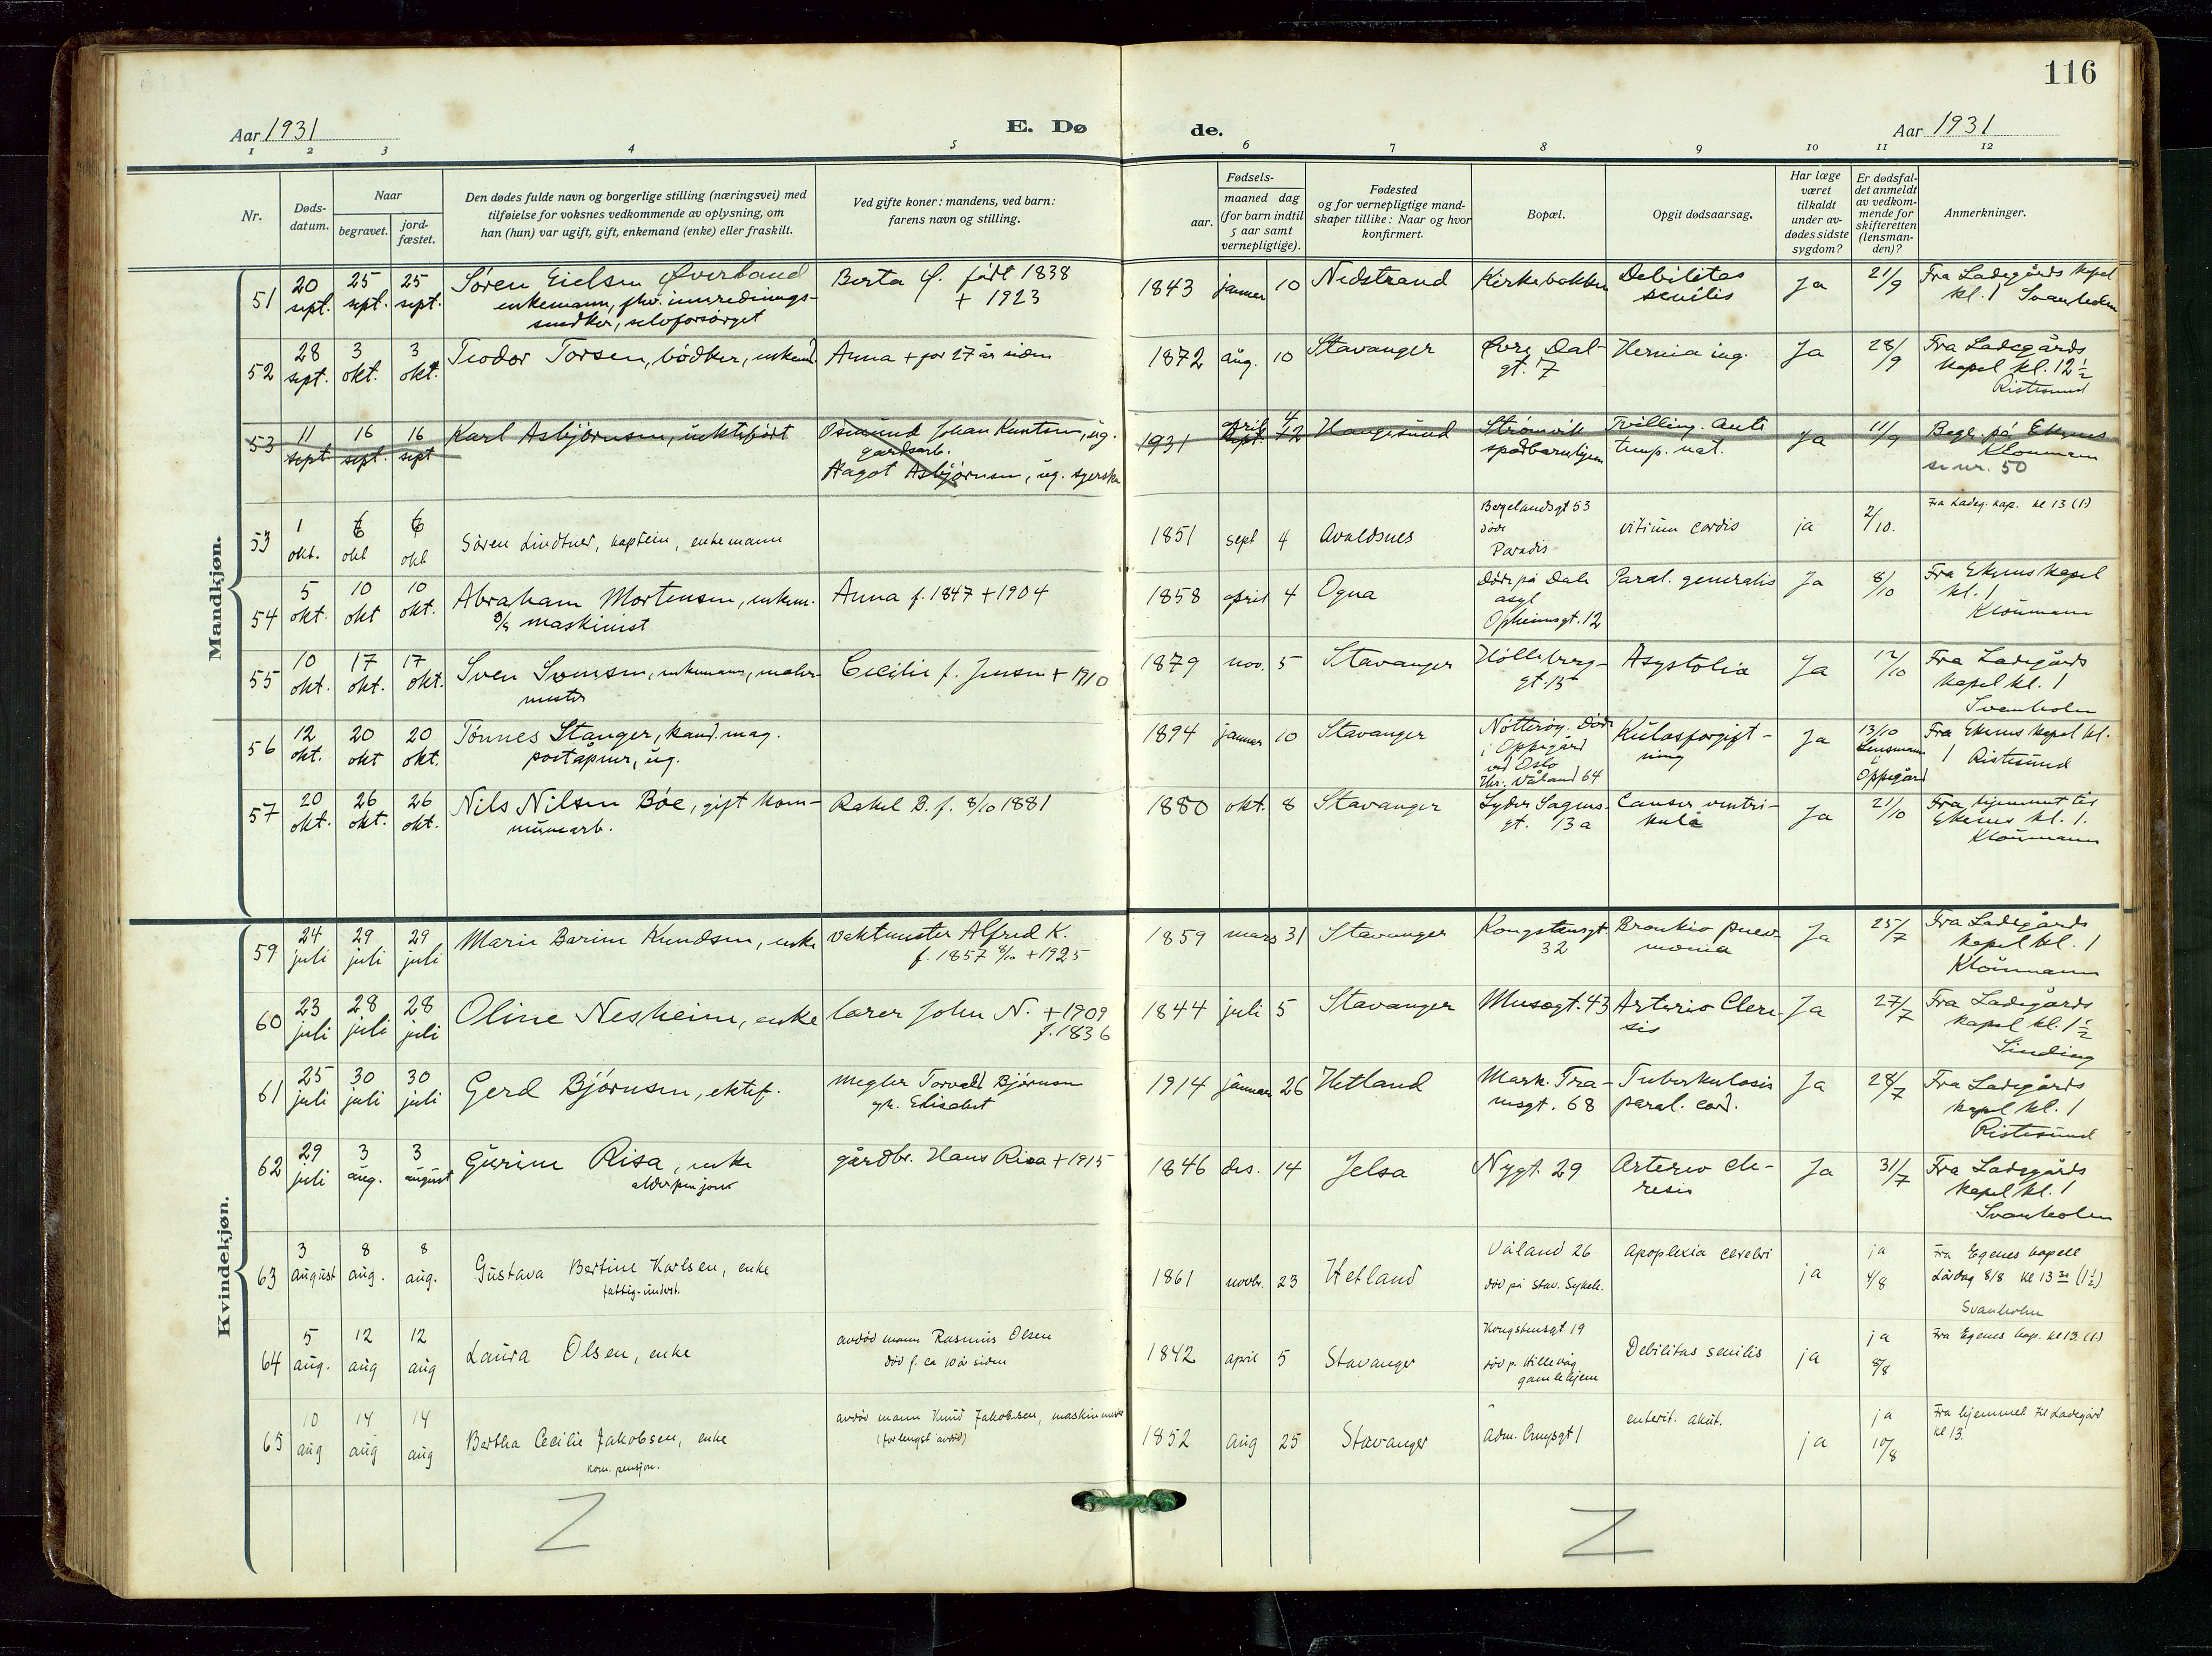 116
Aar 1931
E. Dø
de.
Aar 1931
1 2 3 4 5 6 7 8 9 10 11 12
Nr.
Døds-
datum.
Naar
begravet.
jord-
fæstet.
Den dødes fulde navn og borgerlige stilling (næringsvei) med
tilføielse for voksnes vedkommende av oplysning, om
han (hun) var ugift, gift, enkemand (enke) eller fraskilt.
Ved gifte koner: mandens, ved barn:
farens navn og stilling.
Fødsels-
aar.
maaned dag
(for barn indtil
5 aar samt
vernepligtige).
Fødested
og for vernepligtige mand-
skaper tillike: Naar og hvor
konfirmert.
Bopæl.
Opgit dødsaarsag.
Har læge
været
tilkaldt
under av-
dødes sidste
sygdom?
Er dødsfal-
det anmeldt
av vedkom-
mende for
skifteretten
(lensman-
den)?
Anmerkninger.
Mandkjøn.
51
20
sept.
25
sept.
25
sept.
Søren Eielsen Øverland
enkemann, fhv. innrednings-
snedker, selvforsørget
Berta Ø. født 1838
+ 1923
1843 januar 10 Nedstrand Kirkebakken
Debilitas
senilis
Ja
21/9
Fra Ladegårds kapel
kl. 1 Svanholm
52
28
sept.
3
okt.
3
okt.
Teodor Torsen, bødker, enkem.
Anna + for 27 år siden
1872 aug. 10 Stavanger
Øvre Dal-
gt. 7
Hernia ing.
Ja
28/9
Fra Ladegårds
kapel kl. 12½
Ristesund
53
11
sept.
16
sept.
16
sept
Karl Asbjørnsen, uektefødt
Osmund Johan Knutsen, ug.
gardsarb.
Aagot Asbjørnsen, ug. syerske
1931
april
sept.
4
12
Haugesund
Strømvik
spedbarnhjem
Tvilling. Ante
temp. nat.
Ja
11/9
Begr. på Ekenes
Kloumann
se nr. 50
53
1
okt.
6
okt
6
okt
Søren Lindtner, kaptein, enkemann
1851 sept 4 Avaldsnes
Bergelandsgt 53
døde
Paradis
vitium cordis
ja
2/10.
Fra Ladeg. kap. kl 13 (1)
54
5
okt.
10
okt
10
okt.
Abraham Mortensen, enkem.
D/S maskinist
Anna f. 1847 + 1904
1858 april 4 Ogna
Døde på Dale
asyl
Opheimsgt. 12
Paral. generalis
Ja
8/10
Fra Ekenes kapel
kl. 1
Kloumann
55
10
okt.
17
okt.
17
okt.
Sven Svensen, enkemann, maler-
mester
Cecilie f. Jensen + 1910
1879 nov. 5 Stavanger
Holleberg-
gt. 15
Asystolia
Ja
12/10
Fra Ladegårds
kapel kl. 1
Svanholm
56
12
okt.
20
okt
20
okt.
Tønnes Stanger, kand. mag.
poståpner, ug.
1894 januar 10 Stavanger
Nøtterøy. Døde
i Oppegård
ved Oslo
Her: Våland 64
Kulosforgift-
ning
Ja
13/10
Lensmann
i
Oppegård
Fra Ekenes kapel kl.
1 Ristesund
57
20
okt.
26
okt.
26
okt.
Nils Nilsen Bøe, gift kom-
munearb.
Rakel B. f. 8/10 1881
1880 okt. 8 Stavanger
Lyder Sagens-
gt. 13a
Cancer ventri-
kula
Ja
21/10
Fra hjemmet til
Ekenes kl. 1.
Kloumann
Kvindekjøn.
59
24
juli
29
juli
29
juli
Marie Barine Knudsen, enke
vaktmester Alfred K.
f. 1857 8/10 + 1925
1859 mars 31 Stavanger
Kongstensgt.
32
Bronkio pneu-
monia
Ja
25/7
Fra Ladegårds
kapel kl. 1
Kloumann
60
23
juli
28
juli
28
juli
Oline Nesheim, enke
lærer John N. + 1909
f. 1836
1844 juli 5 Stavanger
Musegt. 43
Arterio Clere-
sis
Ja
27/7
Fra Ladegårds
kapel kl. 1½
Sinding
61
25
juli
30
juli
30
juli
Gerd Bjørnsen, ektef.
megler Torvald Bjørnsen
og h. Elisabet
1914 januar 26 Hetland
Mark. Tra-
nesgt. 68
Tuberkulosis
paral. cord.
Ja
28/7
Fra Ladegårds
kapel kl. 1
Ristesund
62
29
juli
3
aug.
3
august
Gurine Risa, enke
alderspensjon
gårdbr. Hans Risa + 1915
1846 des. 14 Jelsa Nygt. 29
Arterio cle-
resis
Ja
31/7
Fra Ladegårds
kapel kl. 1
Svanholm
63
3
august
8
aug.
8
aug.
Gustava Bertine Karlsen, enke
fattig-underst.
1861 novbr. 23 Hetland
Våland 26
død på Stav. Sykeh.
Apoplexia cerebri
ja
ja
4/8
Fra Egenes kapell
Lørdag 8/8 kl 13 30 (1½)
Svanholm
64
5
aug.
12
aug
12
aug
Laura Olsen, enke
avdød mann Rasmus Olsen
død f. ca 10 år siden
1842 april 5 Stavanger
Kongstensgt 19
død p. Hillevåg
gamlehjem
Debilitas senilis
ja
ja
8/8
Fra Egenes kap. kl 13. (1)
65
10
aug
14
aug
14
aug
Bertha Cecilie Jakobsen, enke
kom. pensjon.
avdød mann Knud Jakobsen,
(for lengst avdød)
1852 aug 25 Stavanger
Adm. Cruysgt 1
enterit. akut.
ja
ja
10/8
Fra hjemmet til Ladegård
kl 13.